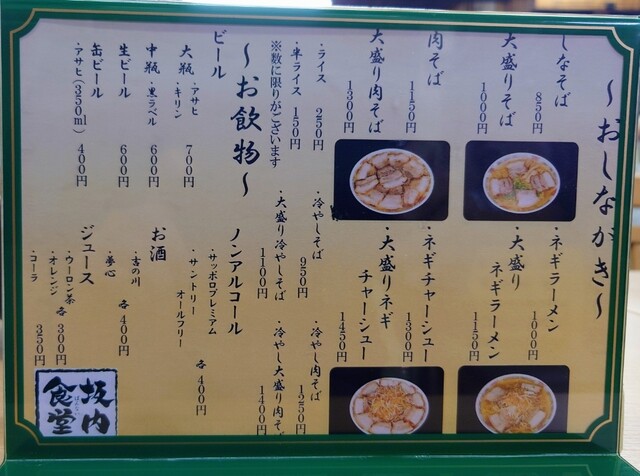 〜おしながき〜
しなそば 850円
大盛りそば 1000円
肉そば 1150円
大盛り肉そば 1300円
・ネギラーメン 1000円
・大盛りネギラーメン 1150円
・ネギチャーシュー 1300円
・大盛りネギチャーシュー 1450円
・ライス 250円
・半ライス 150円
※数に限りがございます
・冷やしそば 950円
・大盛り冷やしそば 1100円
・冷やし肉そば 1250円
・冷やし大盛り肉そば 1400円
〜お飲物〜
ビール
大瓶 ・アサヒ ・キリン 700円
中瓶 ・黒ラベル 600円
生ビール 600円
缶ビール
・アサヒ(350ml) 400円
ノンアルコール
・サッポロプレミアム
・サントリー オールフリー
各400円
お酒
・吉の川
・夢心
各400円
ジュース
・ウーロン茶
・オレンジ
各300円
・コーラ 350円
坂内
食堂